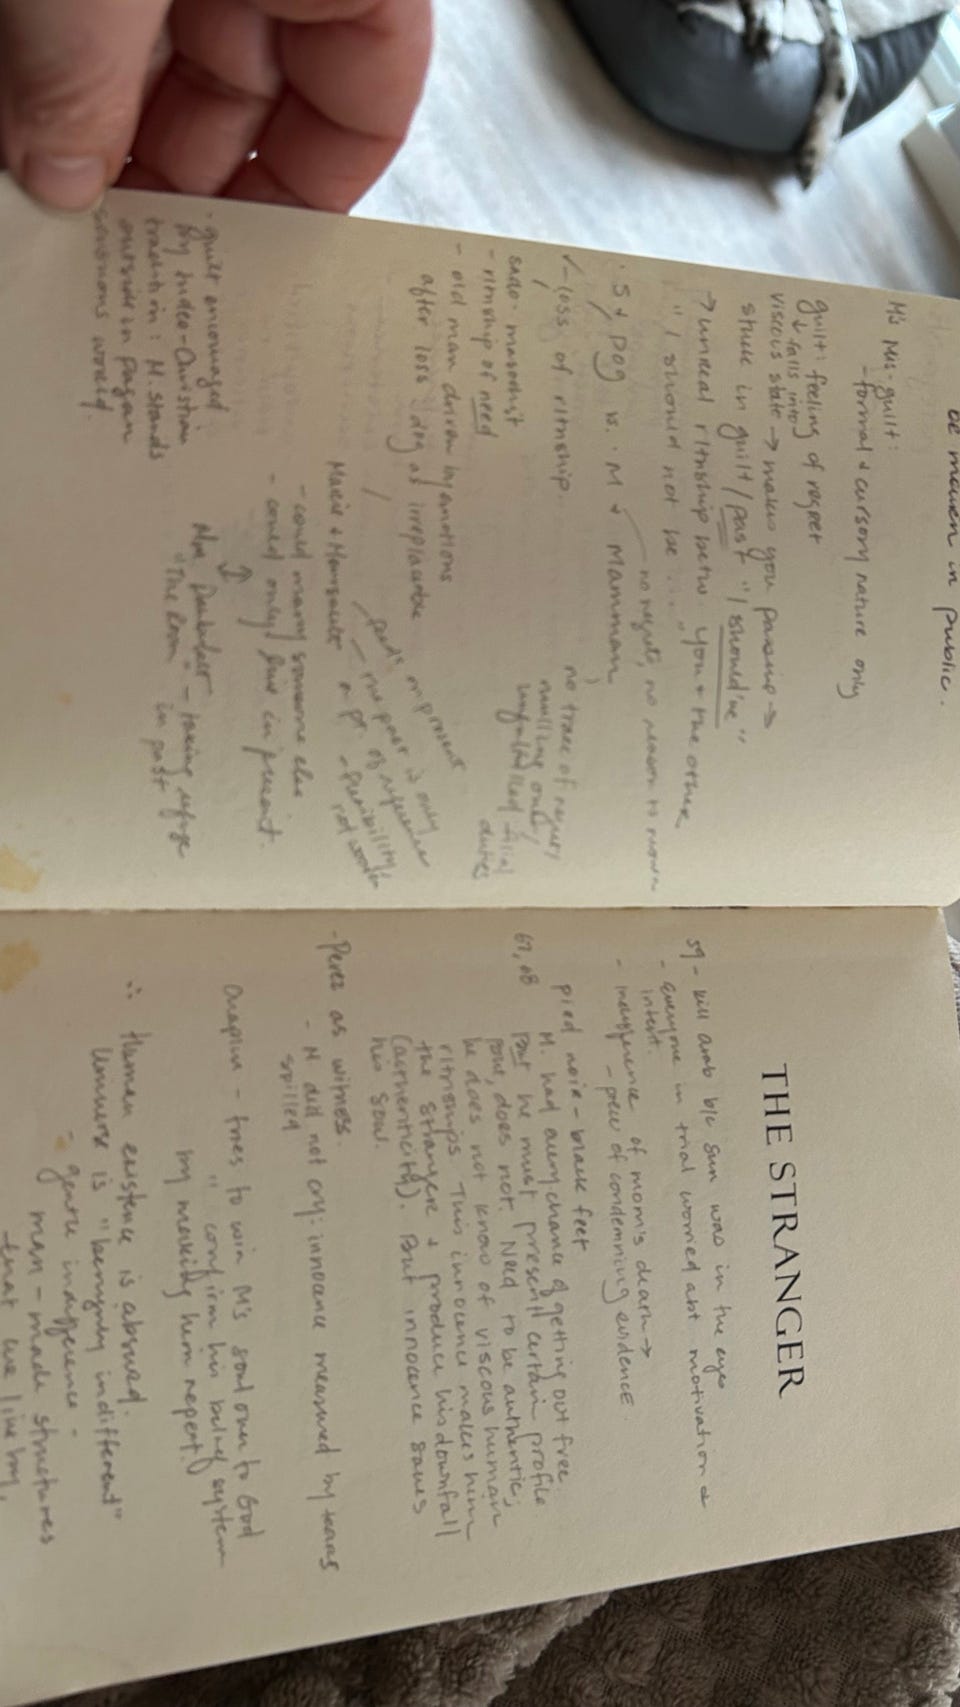 be maven in public.
M's Mis-guilt:
- formal & cursory nature only
guilt: feeling of regret
↓ falls into
viscous state → makes you passive →
stuck in guilt/past "I should've"
→ unreal rltnship betw. you & the other
"I should not be ...."
no regrets, no reason to mourn
· S & Dog vs. M & Maman
✓ - loss of rltnship.
no trace of
only
unfulfilled filial
duties
sado-masochist
- rltnship of need
- old man driven by emotions
after loss / dog as irreplaceable
on present
the past is only
of reference
Marie & Meursault
- could marry someone else
- could only live in present.
↕
- taking refuge
"The Room" in past
· guilt encouraged
by Judeo-Christian
tradition: M. stands
outside in pagan
world.
THE STRANGER
59 - kill arab b/c sun was in the eyes
- everyone in trial worried abt motivation &
intent.
- indifference of mom's death →
- piece of condemning evidence
pied noir - black feet
67, 68 M. had every chance of getting out free.
But he must present certain profile
but, does not. Need to be authentic;
he does not know of viscous human
rltnships. This innocence makes him
the stranger & produce his downfall
(authenticity). But innocence saves
his soul.
- Perez as witness.
- M did not cry: innocence measured by tears
spilled
Chaplin - tries to win M's soul over to God
" confirm his belief system
by making him repent.
∴ Human existence is absurd.
Universe is "benignly indifferent"
- gentle indifference -
man-made structures
that we live by,